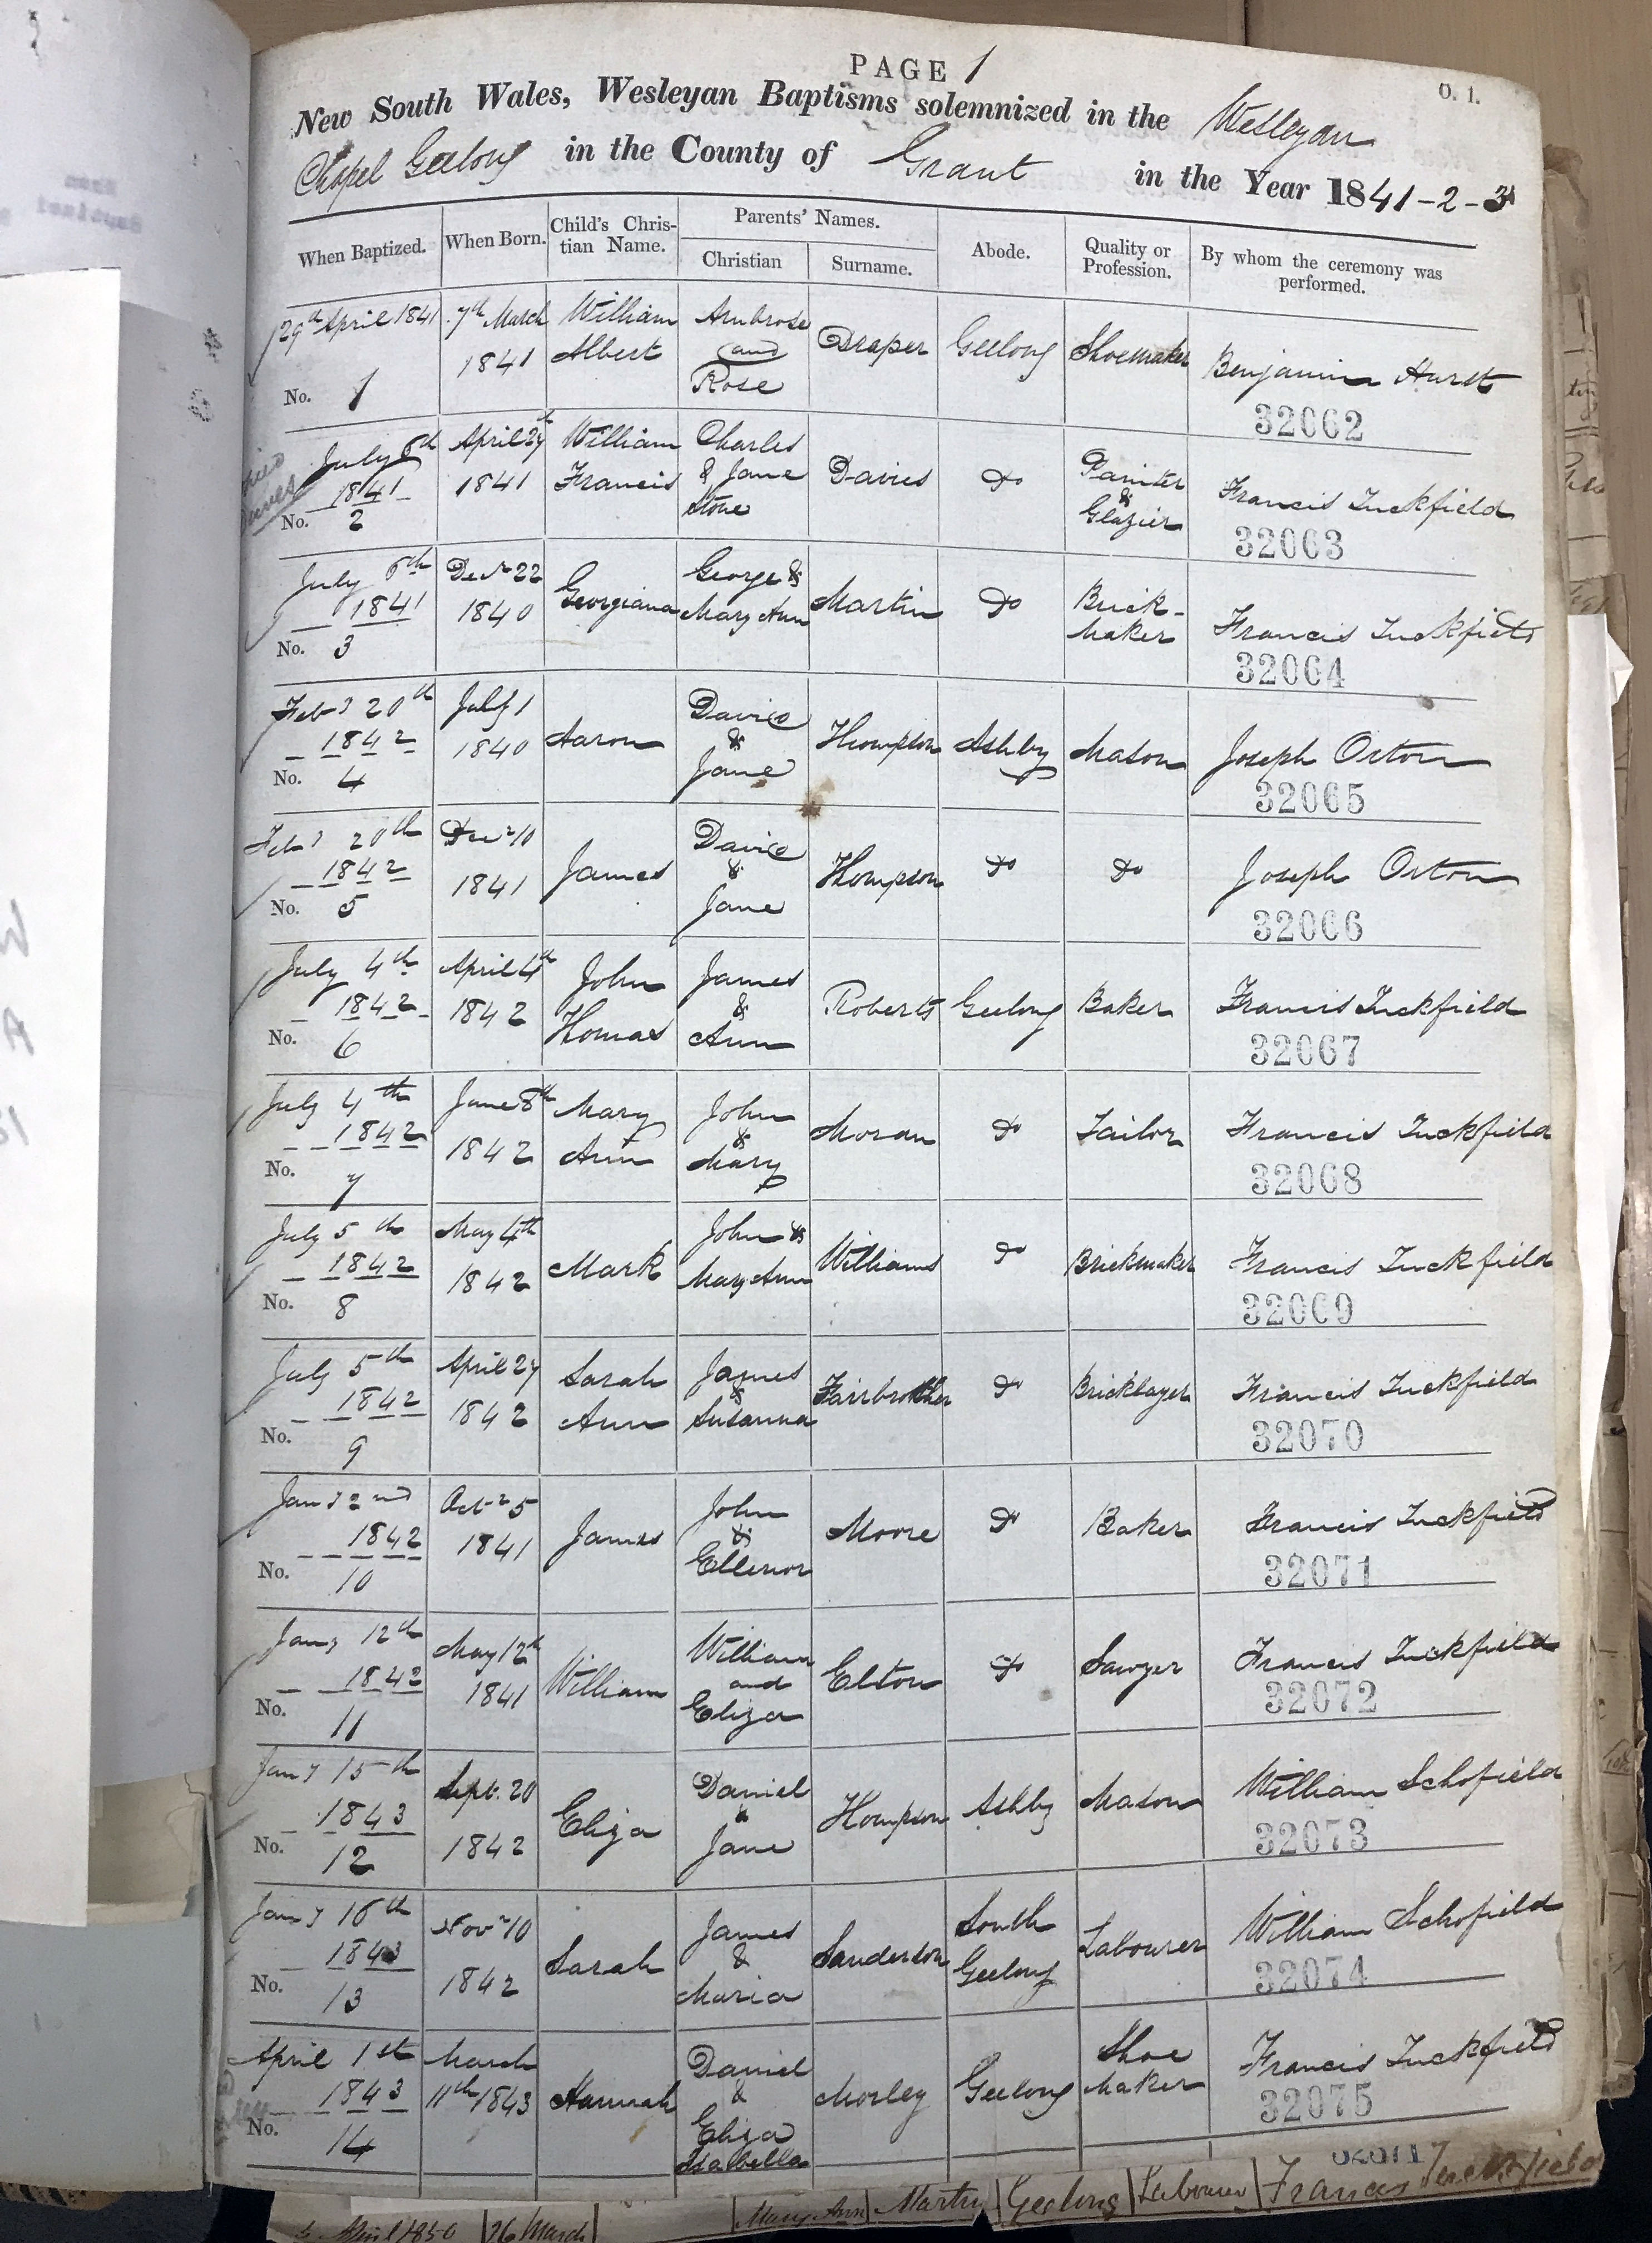 PAGE 1
O. 1.
New South Wales, Wesleyan Baptisms solemnized in the Wesleyan
Chapel Geelong in the County of Grant in the Year 1841-2-3
When Baptized. When Born. Child's Christian Name. Parents' Names. Christian Surname. Abode. Quality or Profession. By whom the ceremony was performed.
29th April 1841 7th March William Ambrose
1841 Albert and Draper Geelong Shoemaker Benjamin Hurst
No. 1 Rose 32062
July 6th April 27th William Charles
1841 1841 Francis & Jane Davies Do Painter & Glazier Francis Tuckfield
No. 2 Stone 32063
July 6th Decr 22 George &
1841 1840 Georgiana Mary Ann Martin Do Brick-maker Francis Tuckfield
No. 3 32064
Feby 20th July 1 David
1842 1840 Aaron & Thompson Ashby Mason Joseph Orton
No. 4 Jane 32065
Feby 20th Decr 10 David
1842 1841 James & Thompson Do Do Joseph Orton
No. 5 Jane 32066
July 4th April 4th John James
1842 1842 Thomas & Roberts Geelong Baker Francis Tuckfield
No. 6 Ann 32067
July 4th June 8th Mary John
1842 1842 Ann & Moran Do Tailor Francis Tuckfield
No. 7 Mary 32068
July 5th May 4th John &
1842 1842 Mark Mary Ann Williams Do Brickmaker Francis Tuckfield
No. 8 32069
July 5th April 27 Sarah James
1842 1842 Ann & Fairbrother Do Bricklayer Francis Tuckfield
No. 9 Susanna 32070
Jany 2nd Octr 5 John
1842 1841 James & Moore Do Baker Francis Tuckfield
No. 10 Ellenor 32071
Jany 12th May 12th William
1842 1841 William and Elton Do Sawyer Francis Tuckfield
No. 11 Eliza 32072
Jany 15th Sept. 20 Daniel
1843 1842 Eliza & Thompson Ashby Mason William Schofield
No. 12 Jane 32073
Jany 16th Novr 10 James South
1843 1842 Sarah & Sanderson Geelong Labourer William Schofield
No. 13 Maria 32074
April 1st March Daniel Shoe
1843 11th 1843 Hannah & Morley Geelong Maker Francis Tuckfield
No. 14 Eliza 32075
Isabella
April 1850 26 March Mary Ann Martin Geelong Labourer Francis Tuckfield